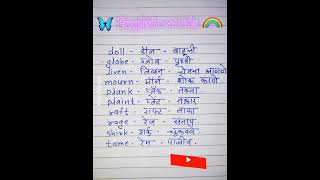 English words
doll - डॉल - बाहुली
globe - ग्लोब - पृथ्वी
liven - लिव्हन - चेतना आणणे
mourn - मोर्न - शोक करणे
plank - प्लँक - तक्ता
plaint - प्लेंट - तक्रार
raft - राफ्ट - ताफा
rage - रेज - संताप
shirk - शर्क -
tame - टेम - पाळीव